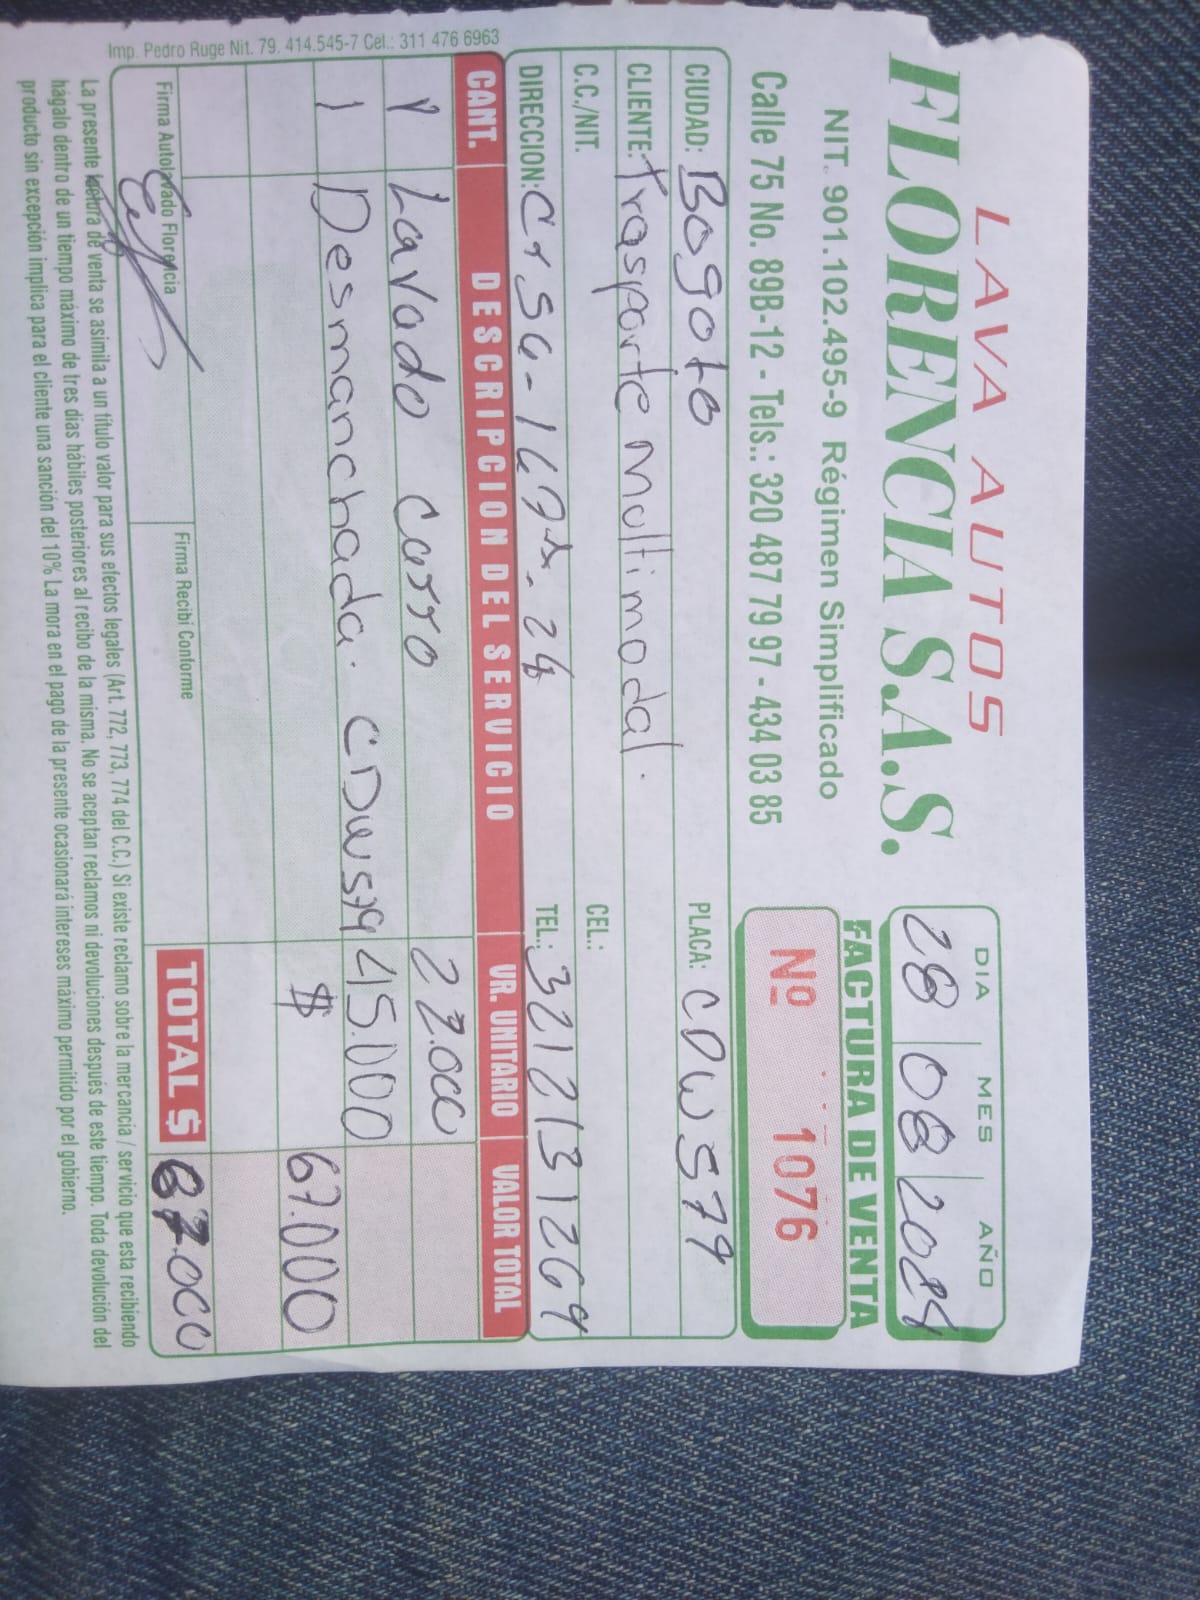 LAVA AUTOS
FLORENCIA S.A.S.
NIT. 901.102.495-9 Régimen Simplificado
Calle 75 No. 89B-12 - Tels.: 320 487 79 97 - 434 03 85
DIA MES AÑO
28 08 2024
FACTURA DE VENTA
Nº 1076
CIUDAD: Bogota PLACA: CDW579
CLIENTE: trasporte multimodal.
C.C./NIT. CEL.:
DIRECCION: TEL.: 3212131269
CANT. DESCRIPCION DEL SERVICIO VR. UNITARIO VALOR TOTAL
1 Lavado carro 22.000
1 Desmanchada. CDW579 45.000
$ 67.000
TOTAL $ 67.000
Firma Autolavado Florencia Firma Recibí Conforme
La presente factura de venta se asimila a un título valor para sus efectos legales (Art. 772, 773, 774 del C.C.) Si existe reclamo sobre la mercancia / servicio que esta recibiendo
hágalo dentro de un tiempo máximo de tres dias hábiles posteriores al recibo de la misma. No se aceptan reclamos ni devoluciones después de este tiempo. Toda devolución del
producto sin excepción implica para el cliente una sanción del 10% La mora en el pago de la presente ocasionará intereses máximo permitido por el gobierno.
Imp. Pedro Ruge Nit. 79. 414.545-7 Cel.: 311 476 6963